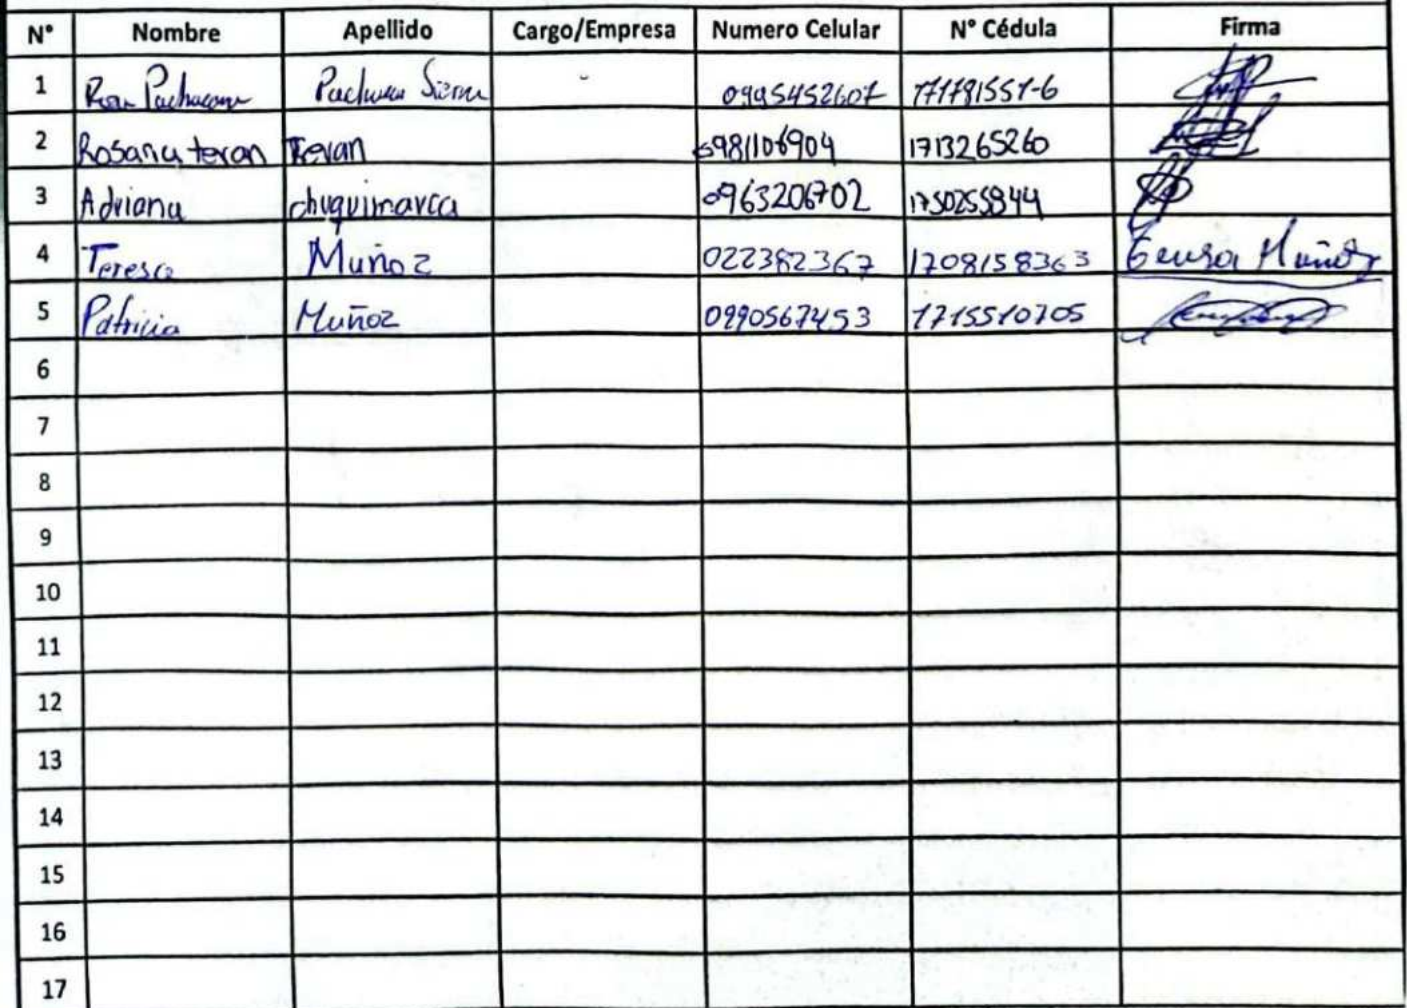 N° Nombre Apellido Cargo/Empresa Numero Celular N° Cédula Firma
1 - 0995452607 171781551-6
2 Rosana teran Teran 0981106904 1713265260
3 Adriana chuquimarca 0963206702 1750255844
4 Teresa Muñoz 022382367 1708158363 Teresa Muñoz
5 Patricia Muñoz 0990567453 1715510705
6
7
8
9
10
11
12
13
14
15
16
17